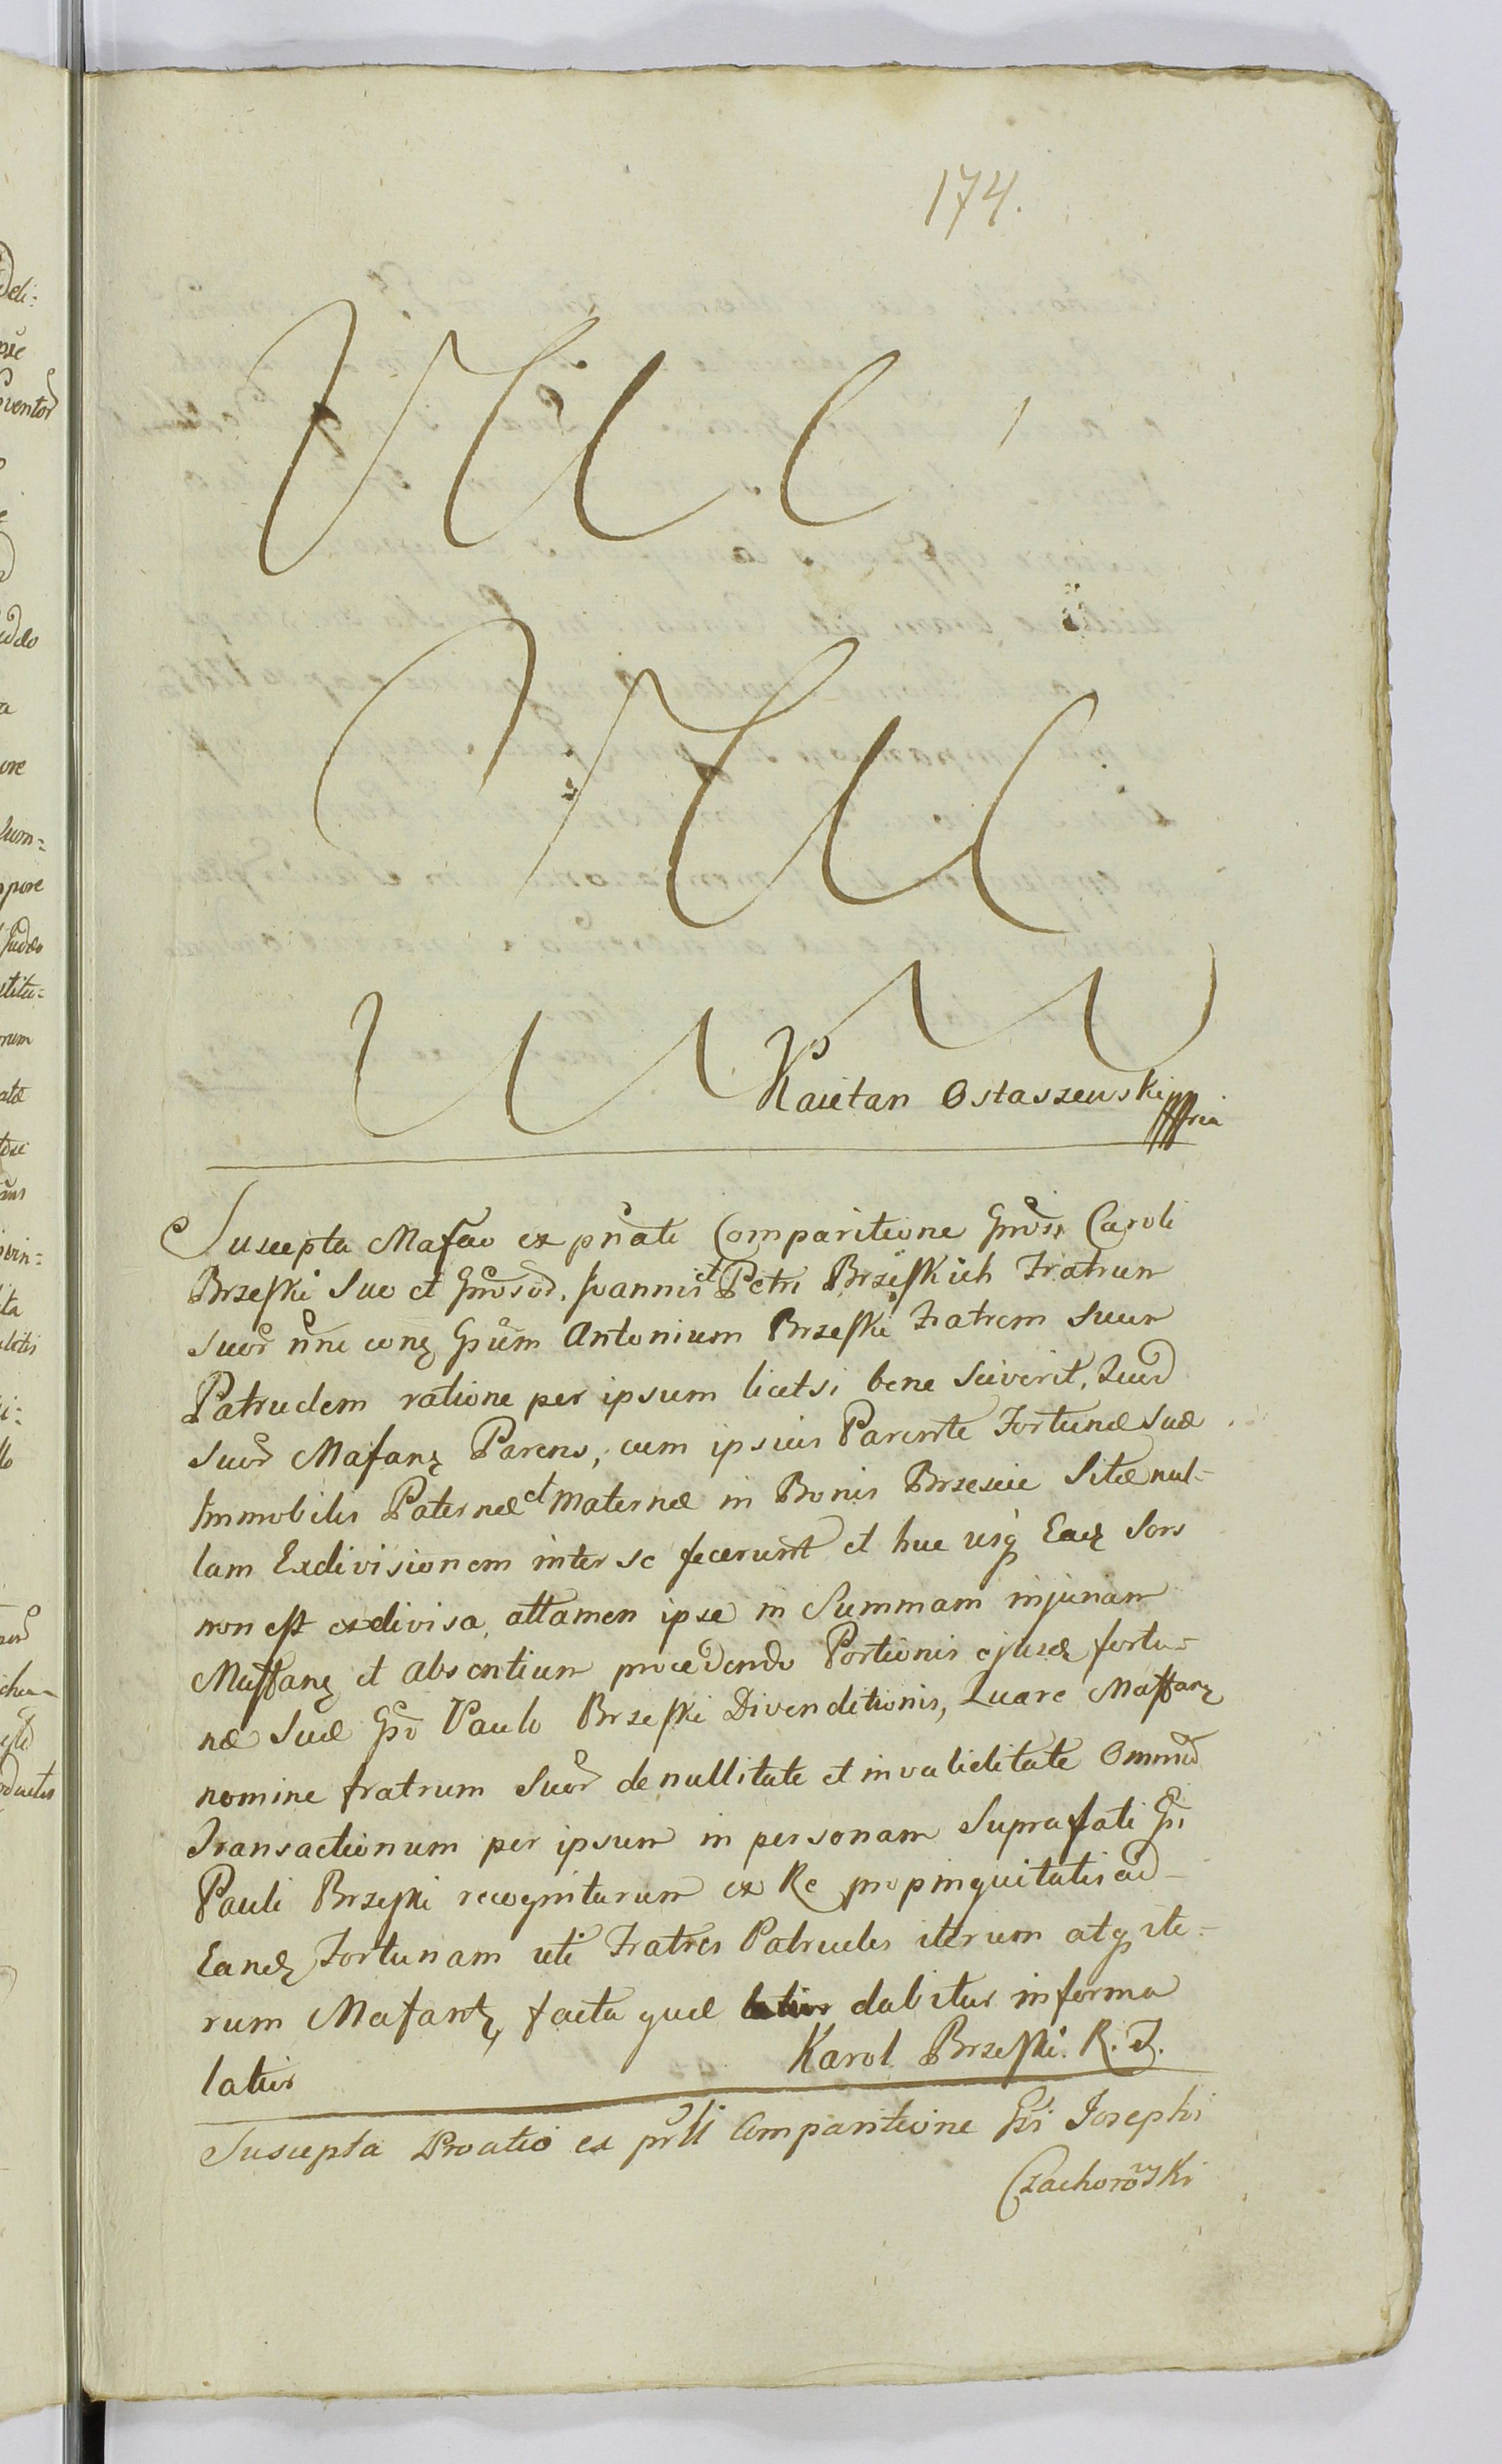 174.
Kaietan Ostaszewski mpria
Suscepta Mafão ex pñati Comparitione Gñosi Caroli
Brzeski Suo et Gñosor. Joannis et Petri Brzeskich Fratrum
Suor nñe conq Gñum Antonium Brzeski Fratrem Suum
Patruelem ratione per ipsum licet si bene Sciverit, Quod
Suor Mafanq Parens, cum ipsius Parente Fortunæ Suæ
Immobilis Paternæ et Maternæ in Bonis Brzescie Sitæ nul-
lam Exdivisionem inter se fecerunt et huc usq Eaq Sors
non est exdivisa, attamen ipse in Summam injuriam
Maffanq et absentium procedendo Portionis ejusq fortu-
næ Suæ Gño Paulo Brzeski Divenditionis, Quare Maffanq
nomine fratrum Suor de nullitate et invaliditate Omniu
Transactionum per ipsum in personam Suprafati Gñi
Pauli Brzeski recogniturum ex Re propinquitatis ad
Eandq Fortunam uti Fratres Patrueles iterum atq ite-
rum Mafantq, facta quæ dabitur in forma
latius Karol Brzeski. R. J.
Suscepta Proatio ex prlli Comparitione Gñi Josephi
Czachorowski